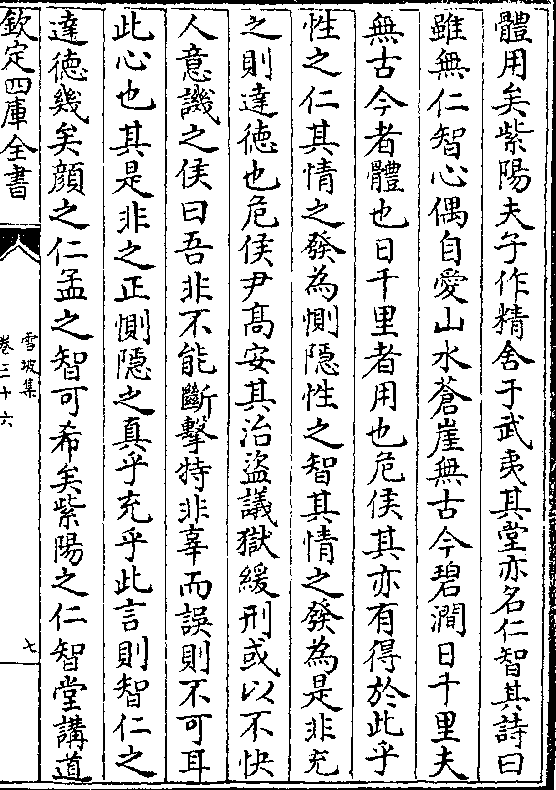 體用矣紫陽夫子作精舍于武夷其堂亦名仁智其詩曰
雖無仁智心偶自愛山水蒼崖無古今碧澗日千里夫
無古今者體也日千里者用也危侯其亦有得於此乎
性之仁其情之發為惻隠性之智其情之發為是非充
之則達徳也危侯尹髙安其治盜議獄緩刑或以不快
人意譏之侯曰吾非不能斷擊特非辜而誤則不可耳
此心也其是非之正惻隠之真乎充乎此言則智仁之
達徳幾矣顔之仁孟之智可希矣紫陽之仁智堂講道
欽定四庫全書
雪坡集
卷三十六
七